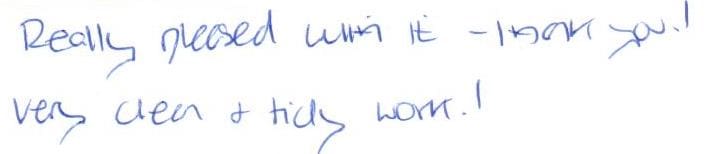 Really pleased with it - thank you!
very clean + tidy work!